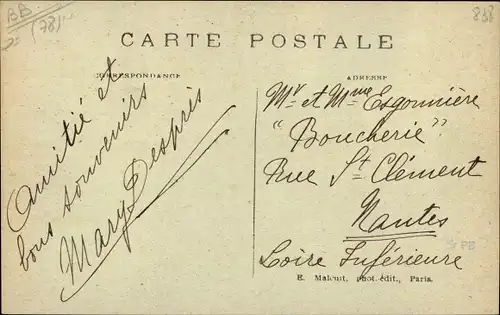 BB
(78)
838
CARTE POSTALE
CORRESPONDANCE
ADRESSE
Amitié et
bons souvenirs
Mary Després
Mr et Mme Esgonnière
"Boucherie"
Rue St Clément
Nantes
Loire Inférieure
E. Malcuit, phot.-édit., Paris.